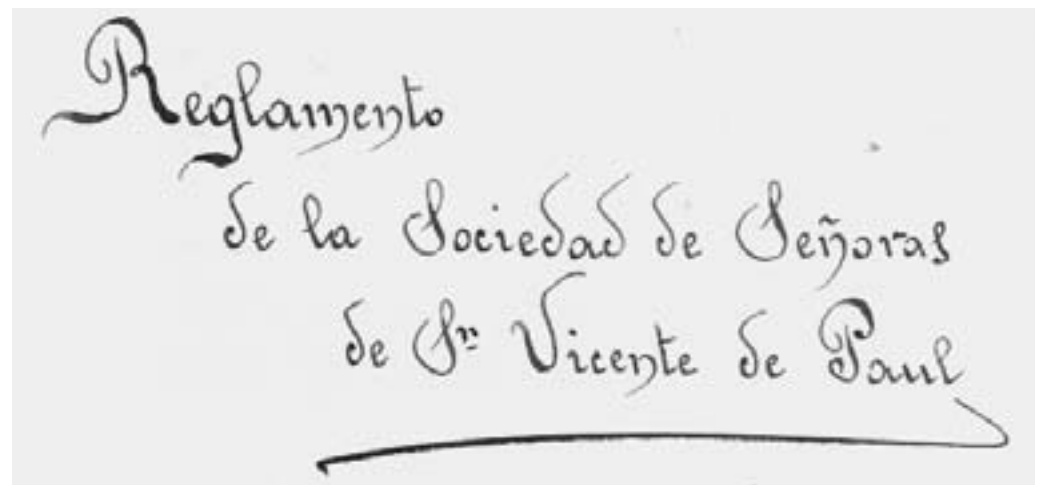 Reglamento
de la Sociedad de Señoras
de Sn Vicente de Paul